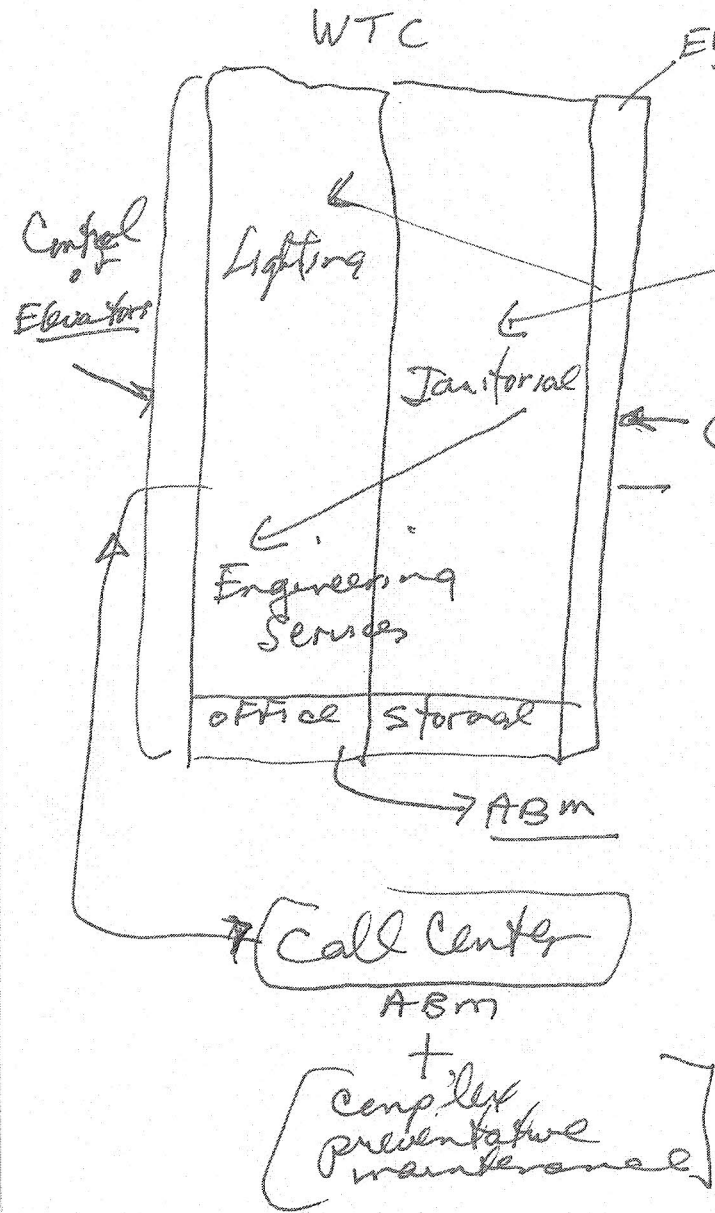 WTC
El
Control
of
Elevators
Lighting
Janitorial
C
Engineering
Services
office storage
ABM
Call Center
ABM
+
complex
preventative
maintenance